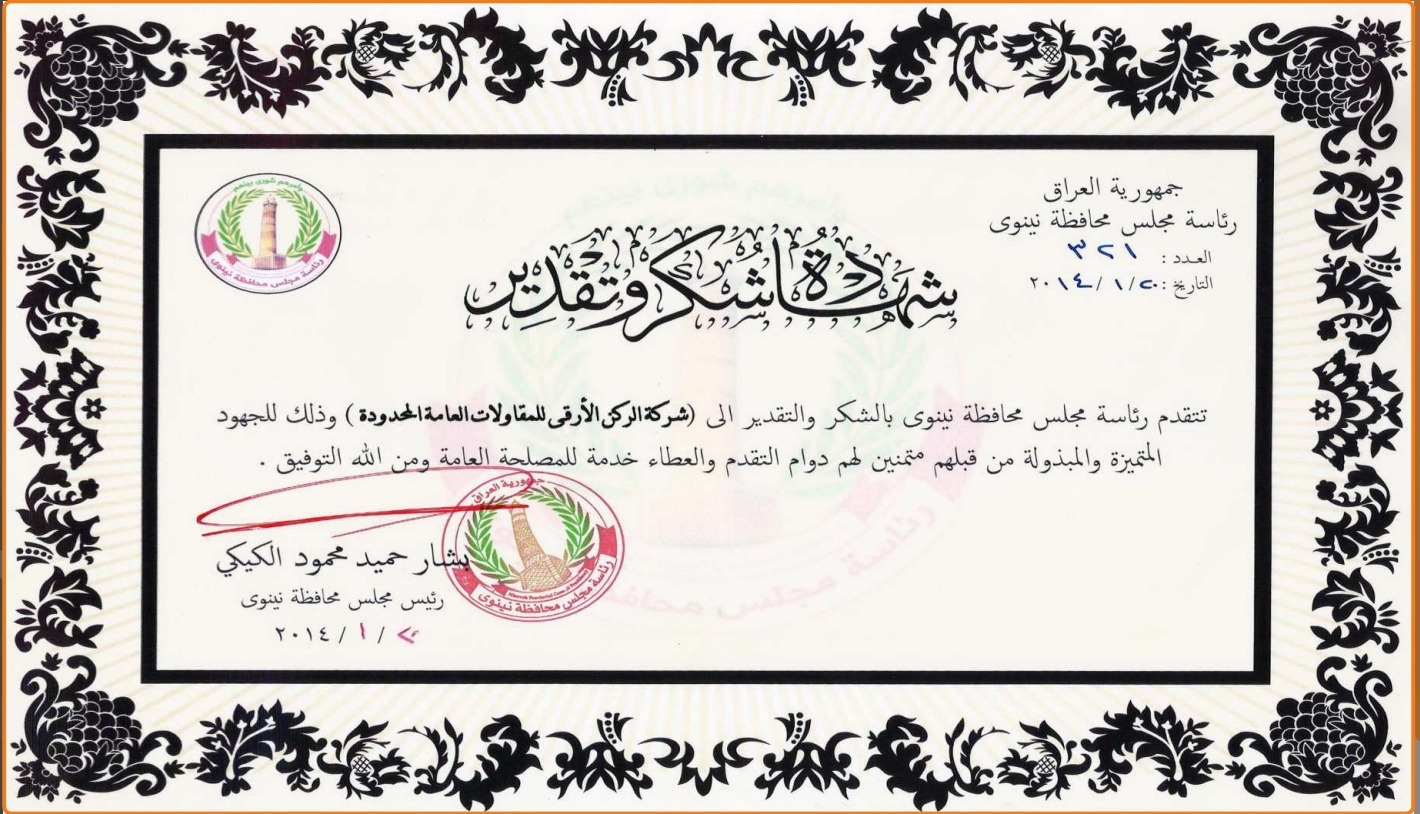 وأمرهم شورى بينهم
رئاسة مجلس محافظة نينوى
جمهورية العراق
رئاسة مجلس محافظة نينوى
العدد : ٣٢١
التاريخ : ٢٠ / ١ / ٢٠١٤
شهادة شكر وتقدير
تتقدم رئاسة مجلس محافظة نينوى بالشكر والتقدير الى (شركة الركن الأرقى للمقاولات العامة المحدودة ) وذلك للجهود
المتميزة والمبذولة من قبلهم متمنين لهم دوام التقدم والعطاء خدمة للمصلحة العامة ومن الله التوفيق .
جمهورية العراق
رئاسة مجلس محافظة نينوى
بشار حميد محمود الكيكي
رئيس مجلس محافظة نينوى
/ ١ / ٢٠١٤